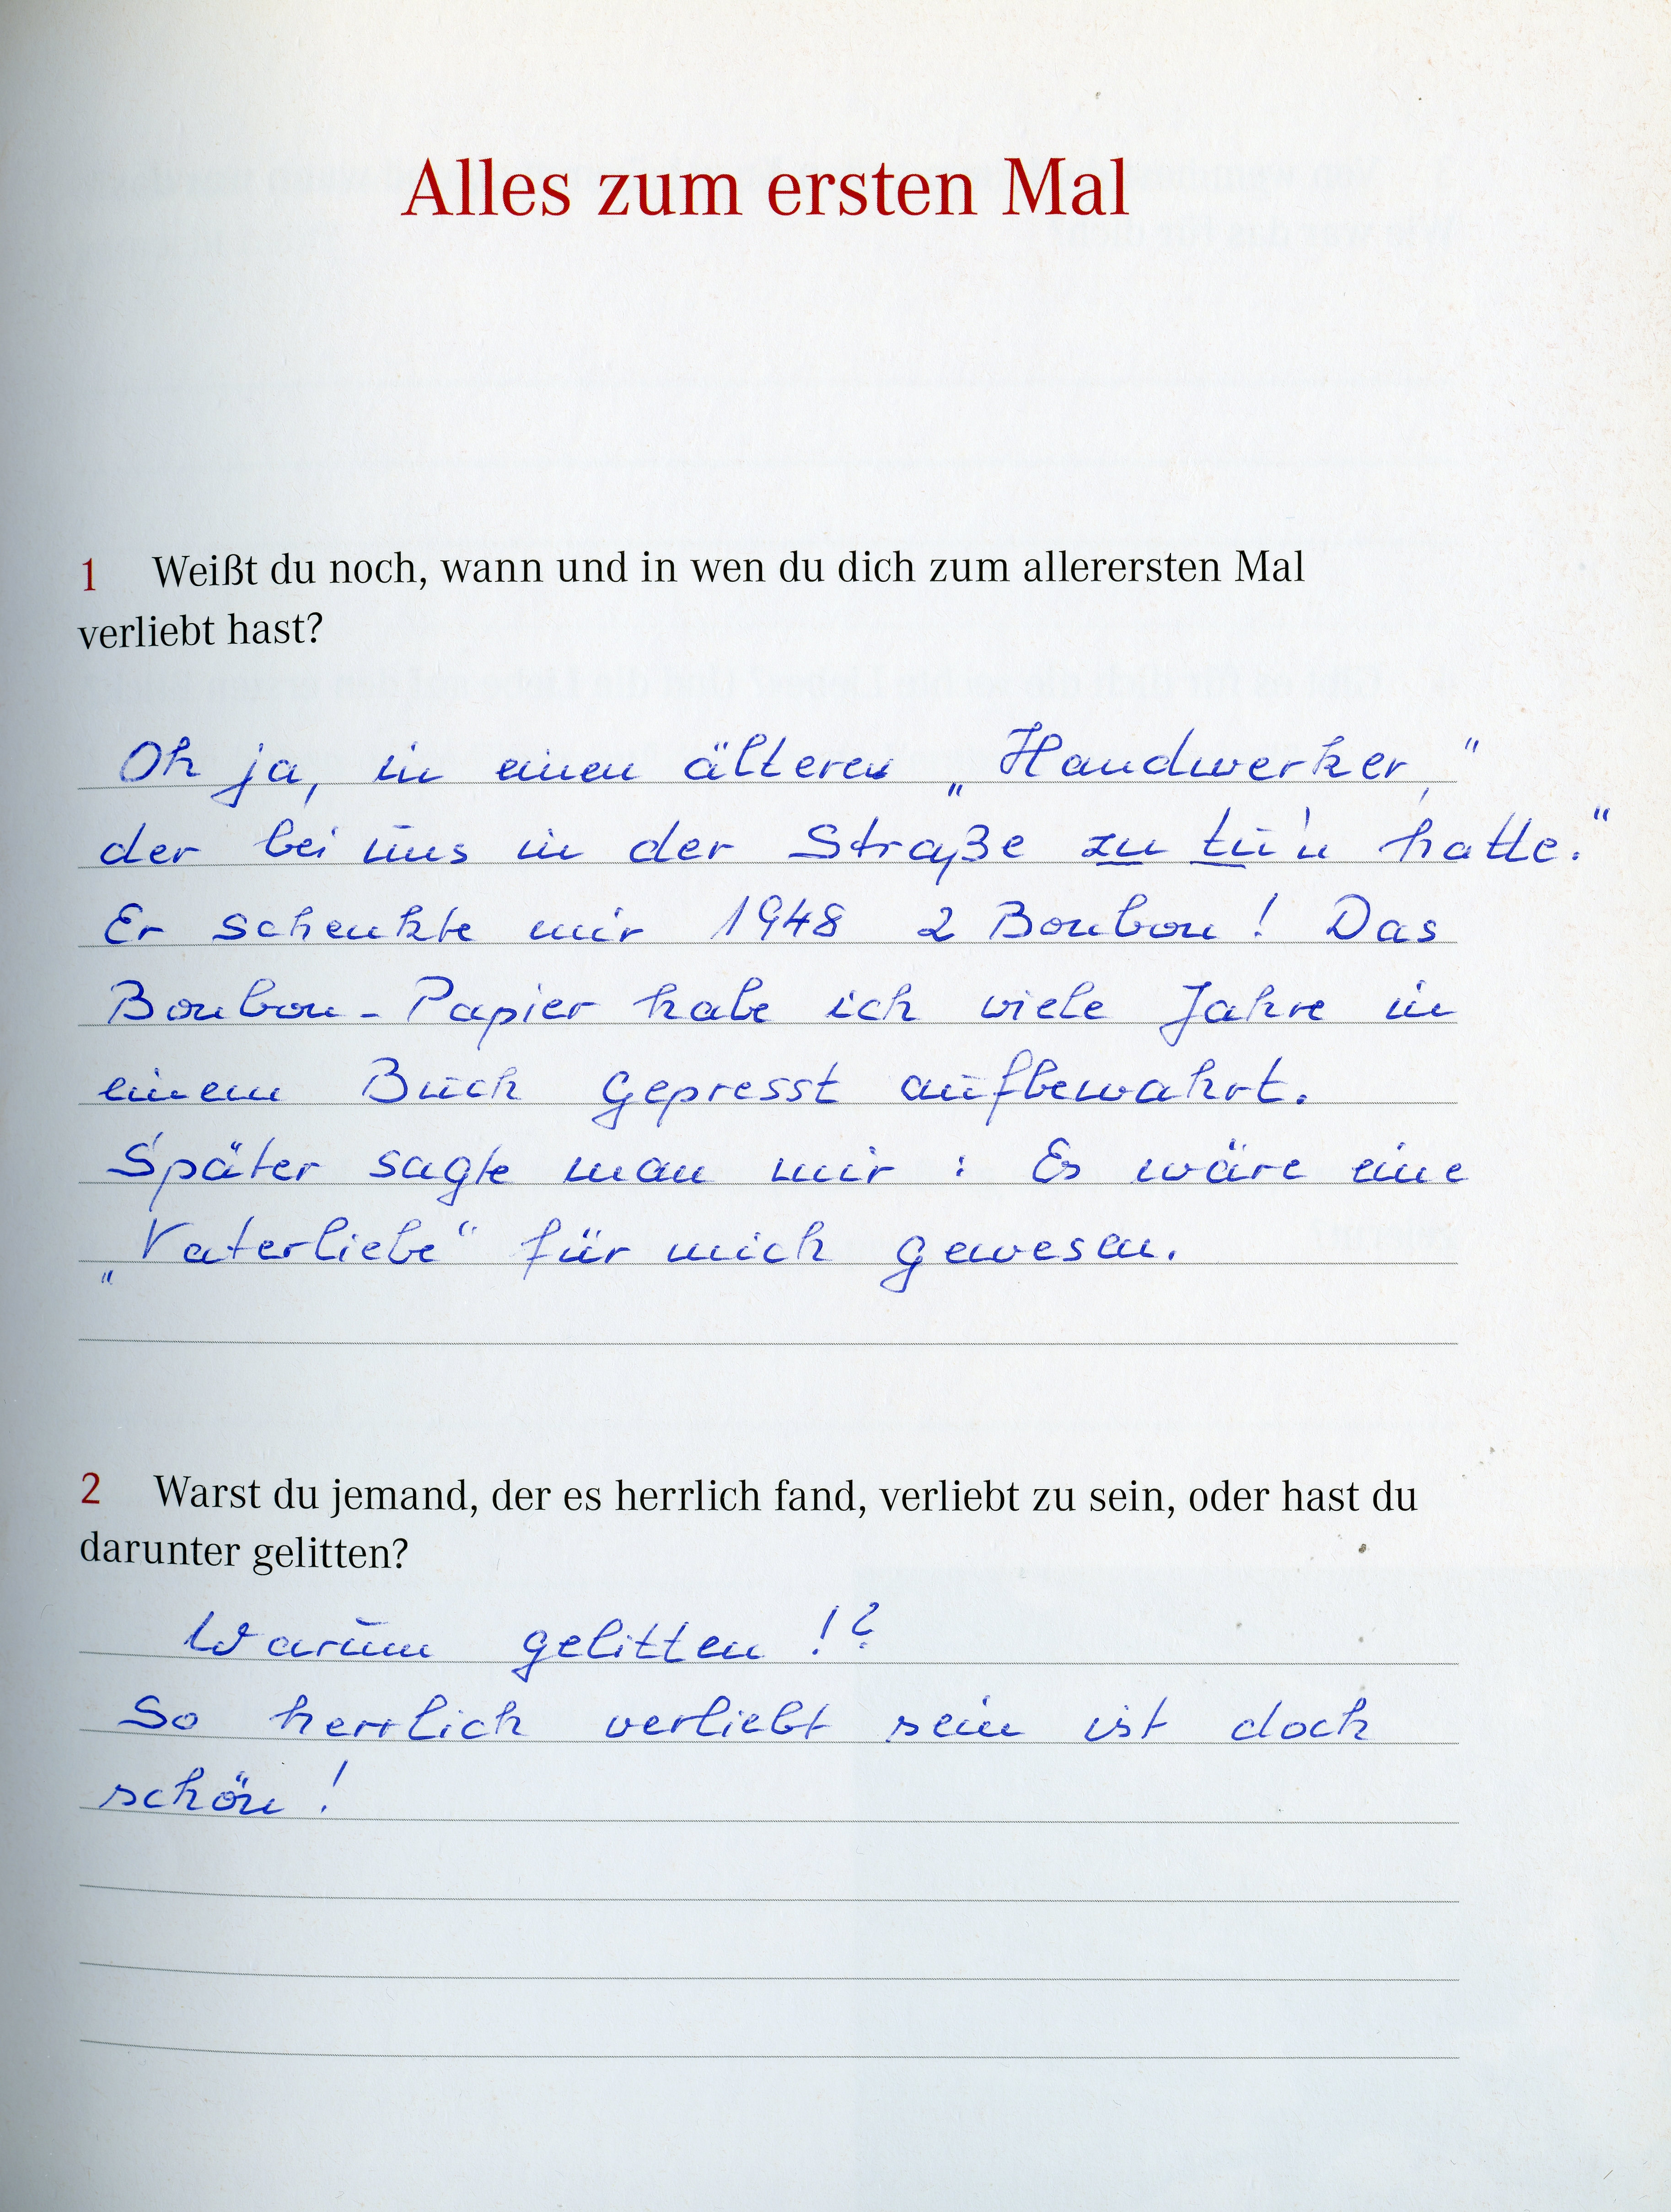 Alles zum ersten Mal
1 Weißt du noch, wann und in wen du dich zum allerersten Mal
verliebt hast?
Oh ja, in einen älteren „Handwerker,"
der bei uns in der Straße zu tu'n hatte."
Er schenkte mir 1948 2 Bonbon! Das
Bonbon-Papier habe ich viele Jahre in
einem Buch gepresst aufbewahrt.
Später sagte man mir: Es wäre eine
„Vaterliebe" für mich gewesen.
2 Warst du jemand, der es herrlich fand, verliebt zu sein, oder hast du
darunter gelitten?
Warum gelitten!?
So herrlich verliebt sein ist doch
schön!